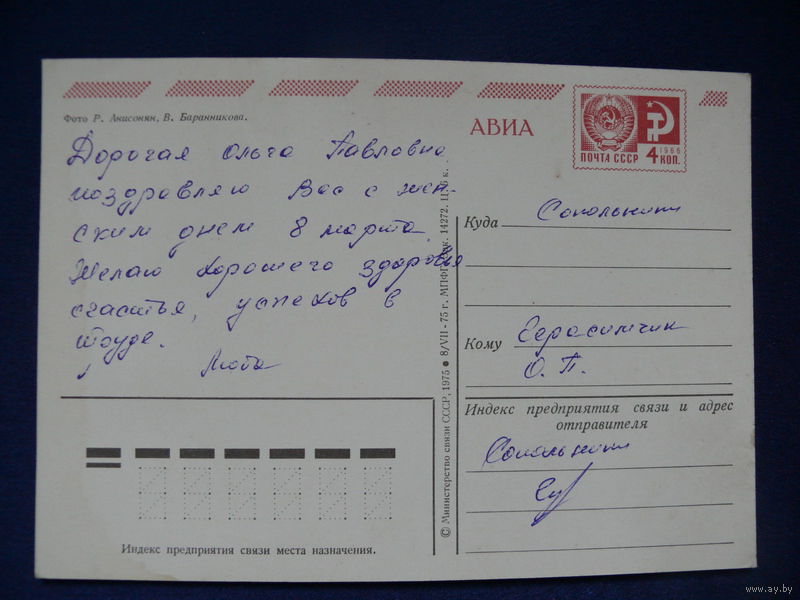 Фото Р. Анисонян, В. Баранникова.
АВИА
ПОЧТА СССР
1966
4 КОП.
Дорогая Ольга Павловна
поздравляю Вас с жен-
ским днем 8 марта.
Желаю хорошего здоровья
счастья, успехов в
труде.
Люба
Куда Сокольники
Кому Герасимчик
О. П.
Индекс предприятия связи и адрес
отправителя
Сокольники
Индекс предприятия связи места назначения.
© Министерство связи СССР, 1975 ● 8/VII - 75 г. МПФГ. 14272. Ц. 6 к.
www.ay.by